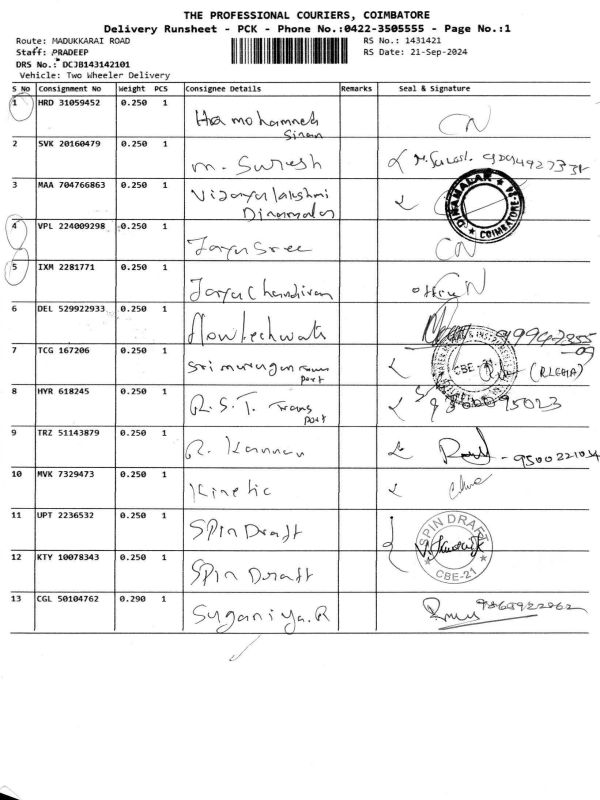 THE PROFESSIONAL COURIERS, COIMBATORE
Delivery Runsheet - PCK - Phone No.:0422-3505555 - Page No.:1
Route: MADUKKARAI ROAD RS No.: 1431421
Staff: PRADEEP RS Date: 21-Sep-2024
DRS No.: DCJB143142101
Vehicle: Two Wheeler Delivery
S No Consignment No Weight PCS Consignee Details Remarks Seal & Signature
1 HRD 31059452 0.250 1
mohammed
Sinan CN
2 SVK 20160479 0.250 1
M. Suresh
3 MAA 704766863 0.250 1
Vijayalakshmi
Dinamalar DINAMALAR COIMBATORE
4 VPL 224009298 0.250 1
Jaya Sree CN
5 IXM 2281771 0.250 1
Jaya Chandiran office CN
6 DEL 529922933 0.250 1
flowtechwats
7 TCG 167206 0.250 1
Sri murugan Trans
port CBE-21
8 HYR 618245 0.250 1
R.S.T. Trans
port
9 TRZ 51143879 0.250 1
R. Kannan 9500221034
10 MVK 7329473 0.250 1
Kinetic
11 UPT 2236532 0.250 1
SPin Draft SPIN DRAFT
CBE-21
12 KTY 10078343 0.250 1
SPin Draft
13 CGL 50104762 0.290 1
Suganiya.R